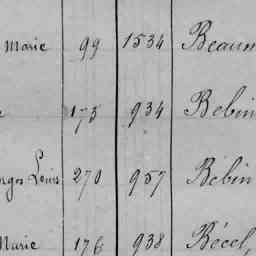 Marie 99 1534 Beaum
175 934 Bebin
Louis 270 957 Bébin
Marie 176 938 Bécel,